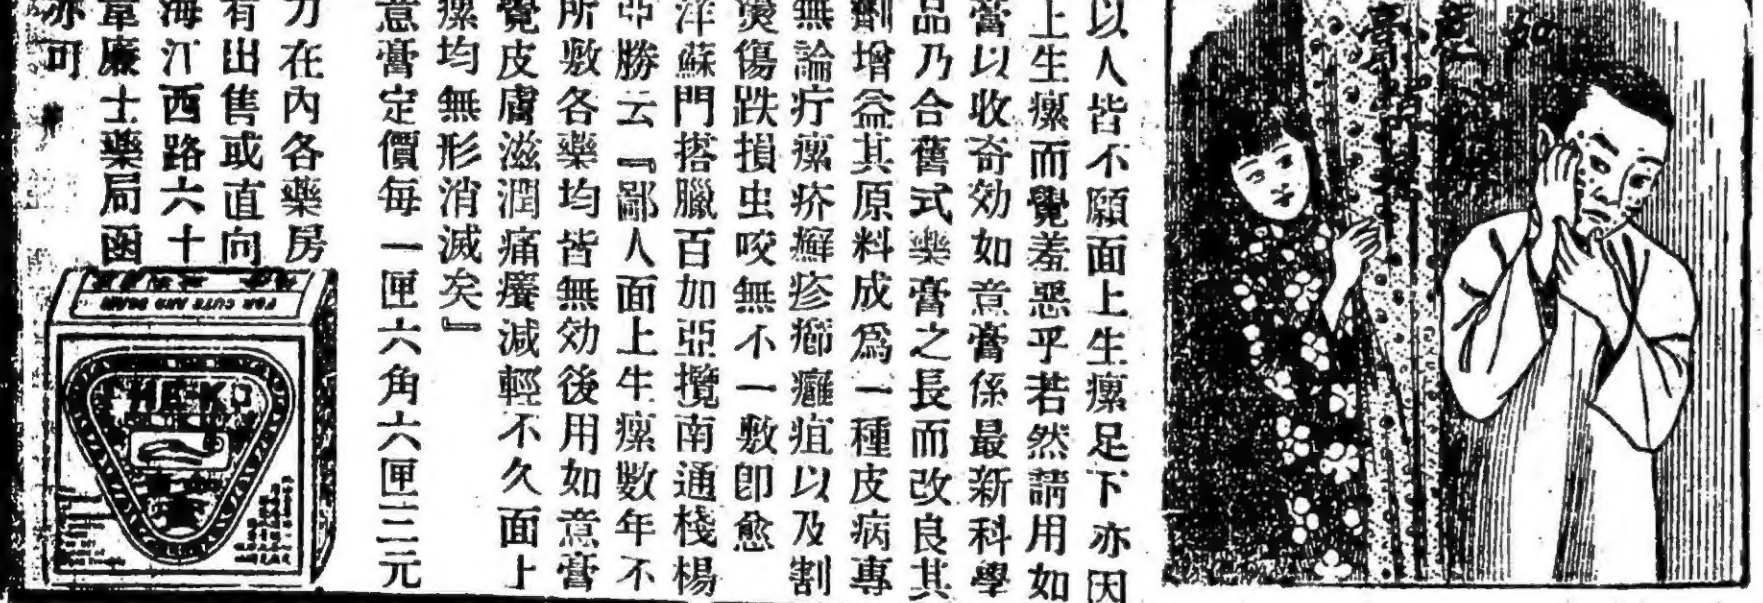 如意膏
以人皆不願面上生瘰足下亦因
上生瘰而覺羞惡乎若然請用如
膏以收奇効如意膏係最新科學
品乃合舊式藥膏之長而改良其
劑增益其原料成爲一種皮病專
無論疔瘰疥癬疹癤癰疽以及割
燙傷跌損虫咬無不一敷即愈
洋蘇門搭臘百加亞攬南通棧楊
亞勝云『鄙人面上生瘰數年不
所敷各藥均皆無効後用如意膏
覺皮膚滋潤痛癢減輕不久面上
瘰均無形消滅矣』
意膏定價每一匣六角六匣三元
力在內各藥房
有出售或直向
海江西路六十
韋廉士藥局函
亦可
FOR CUTS AND BURNS
HE-KO